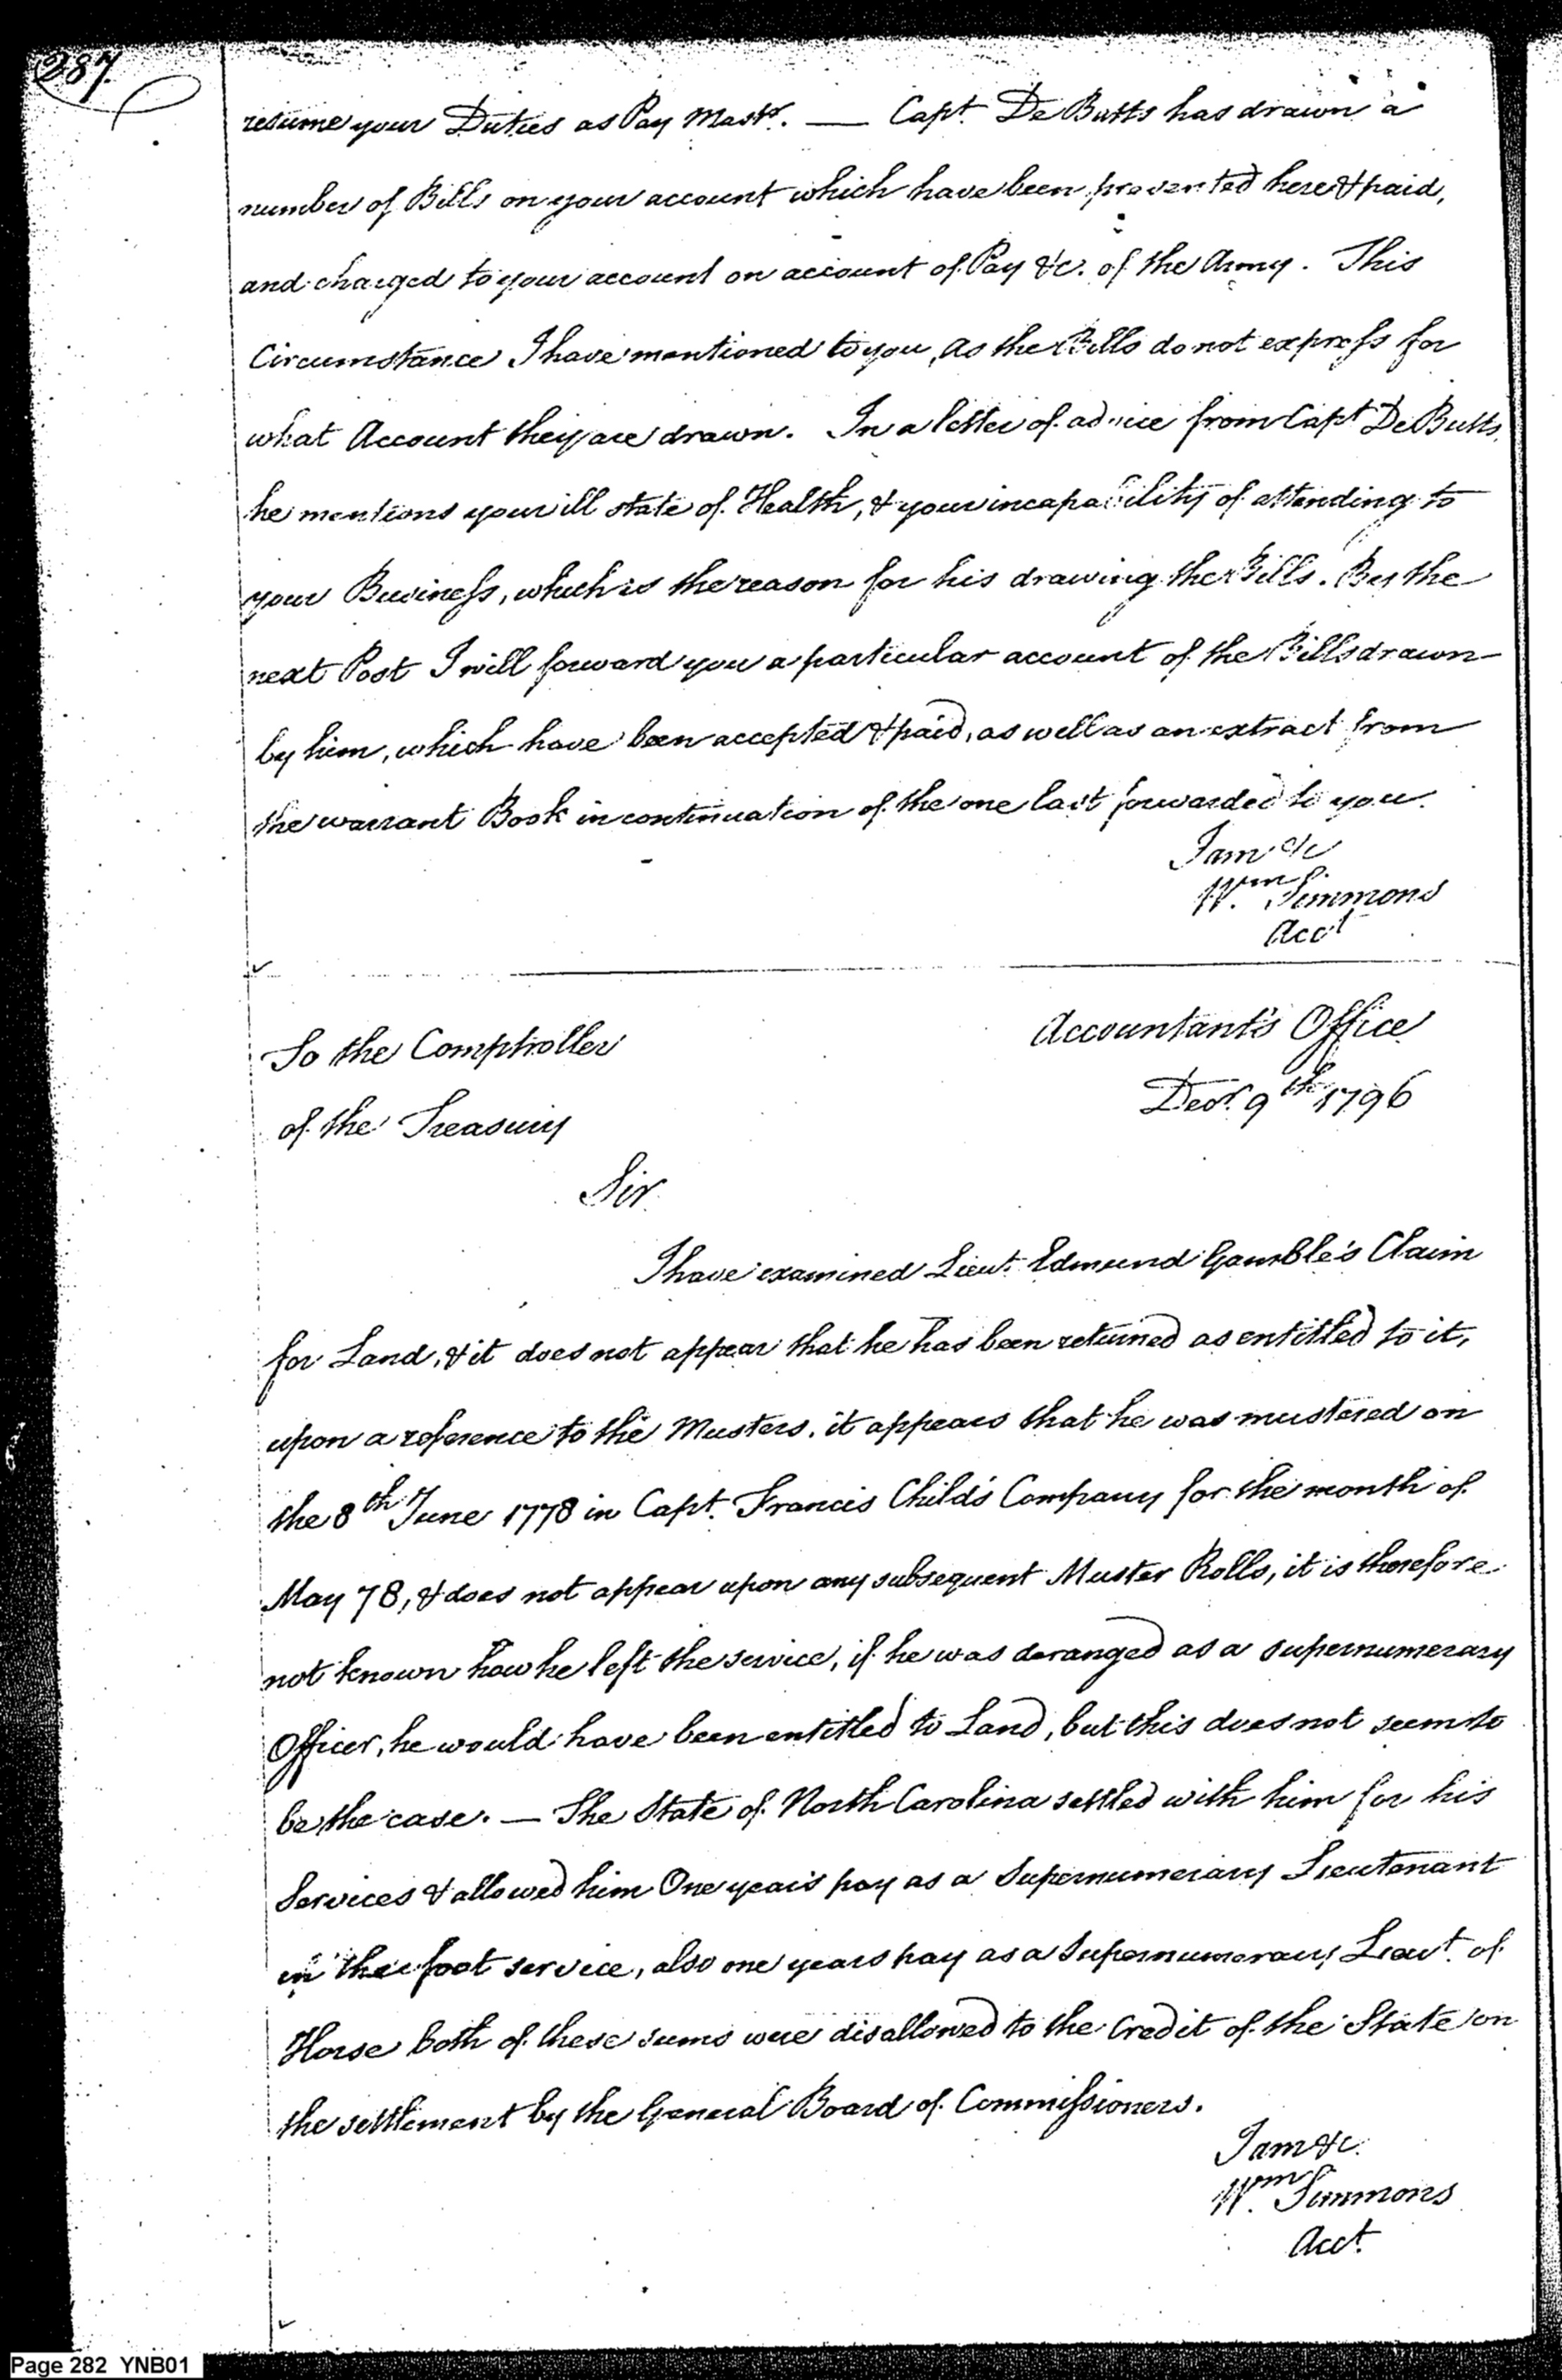 287.
resume your Duties as Pay Mastr. — Capt. De Butts has drawn a
number of Bills on your account which have been presented here & paid,
and charged to your account on account of Pay &c. of the Army. This
Circumstance I have mentioned to you, as the Bills do not express for
what Account they are drawn. In a letter of advice from Capt De Butts,
he mentions your ill state of Health, & your incapability of attending to
your Business, which is the reason for his drawing the Bills. By the
next Post I will forward you a particular account of the Bills drawn
by him, which have been accepted & paid, as well as an extract from
the warrant Book in continuation of the one last forwarded to you.
I am &c
Wm. Simmons
Acct
To the Comptroller
of the Treasury
Accountant's Office
Decr. 9th 1796
Sir
I have examined Lieut. Edmund Gamble's Claim
for Land, & it does not appear that he has been returned as entitled to it,
upon a reference to the Musters, it appears that he was mustered on
the 8th June 1778 in Capt. Francis Child's Company for the month of
May 78, & does not appear upon any subsequent Muster Rolls, it is therefore
not known how he left the service, if he was deranged as a supernumerary
Officer, he would have been entitled to Land, but this does not seem to
be the case. — The State of North Carolina settled with him for his
Services & allowed him One years pay as a Supernumerary Lieutenant
in the foot service, also one years pay as a Supernumerary Lieut. of
Horse both of these sums were disallowed to the Credit of the State on
the settlement by the General Board of Commissioners.
I am &c.
Wm. Simmons
Acct.
Page 282 YNB01